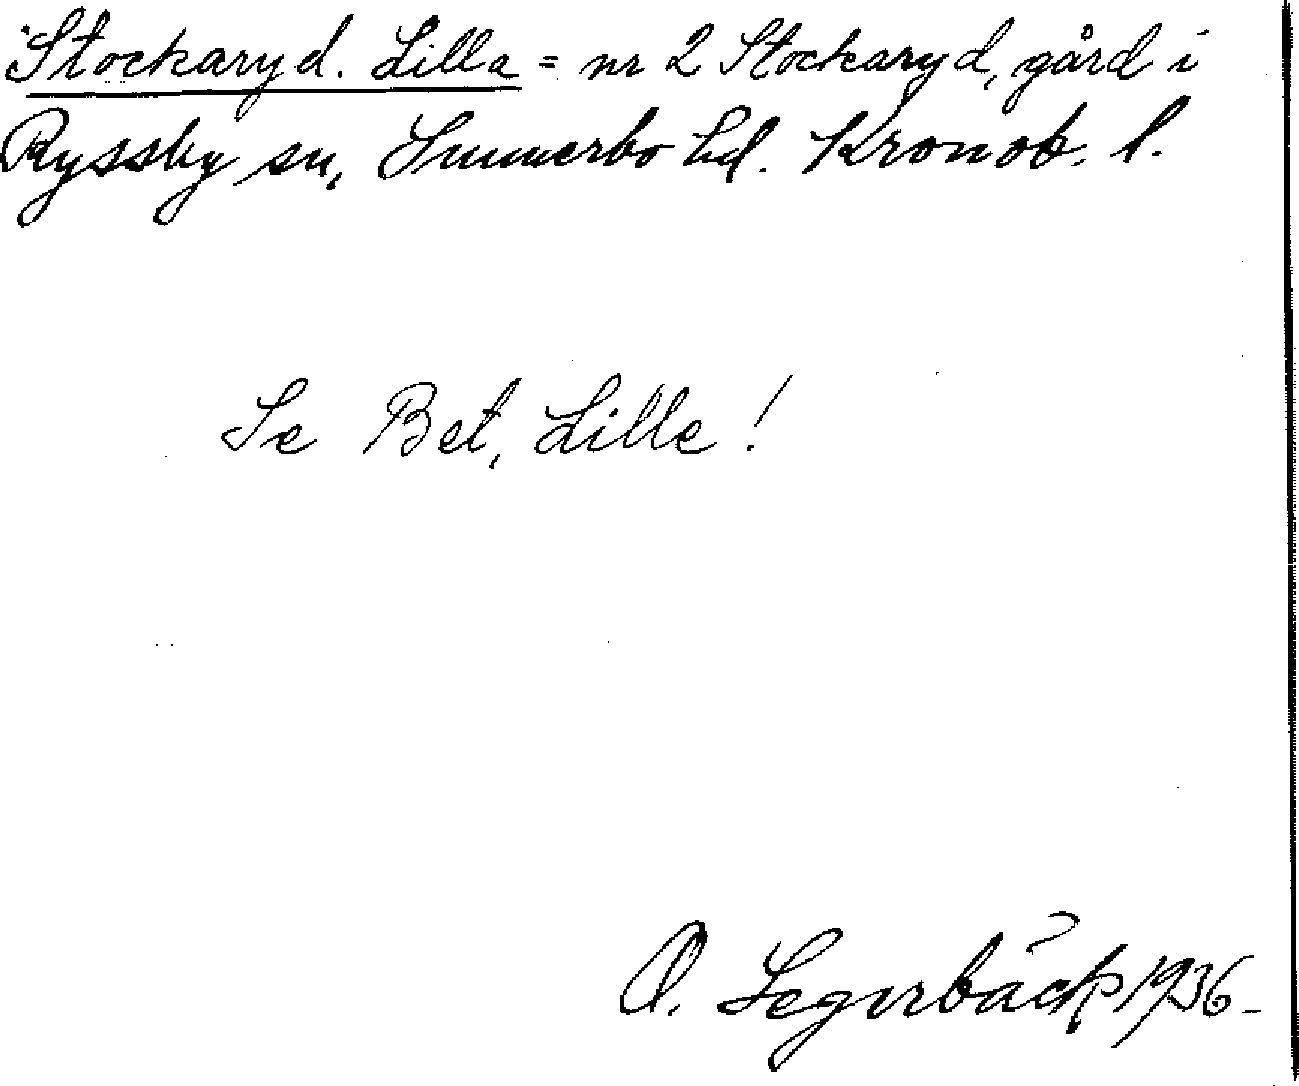 Stockaryd. Lilla = nr 2 Stockaryd, gård i
Ryssby sn, Sunnerbo hd. Kronob. l.
Se Bet, Lille!
O. Segerbäck 1936-